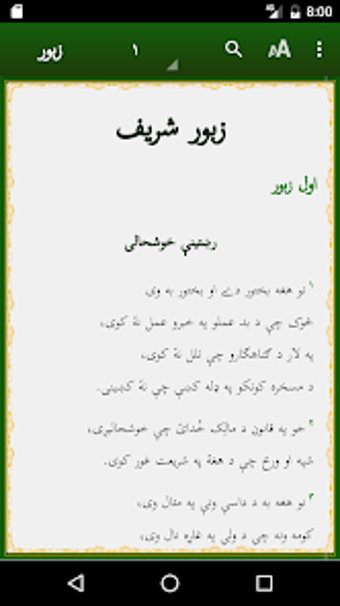 8:00
زبور ۱ AA
زبور شریف
اول زبور
رښتینې خوشحالی
۱ نو هغه بختور دے او بختور به وی
څوک چې د بد عملو په خبرو عمل نۀ کوی،
په لار د ګناهګارو چې تلل نۀ کوی،
د مسخره کونکو په ډله کښې چې نۀ کښینی.
۲ خو په قانون د مالِک خُدائ چې خوشحالیږی،
شپه او ورځ چې د هغۀ په شریعت غور کوی.
۳ نو هغه به د داسې ونې په مثال وی،
کومه ونه چې د ولې په غاړه نال وی،